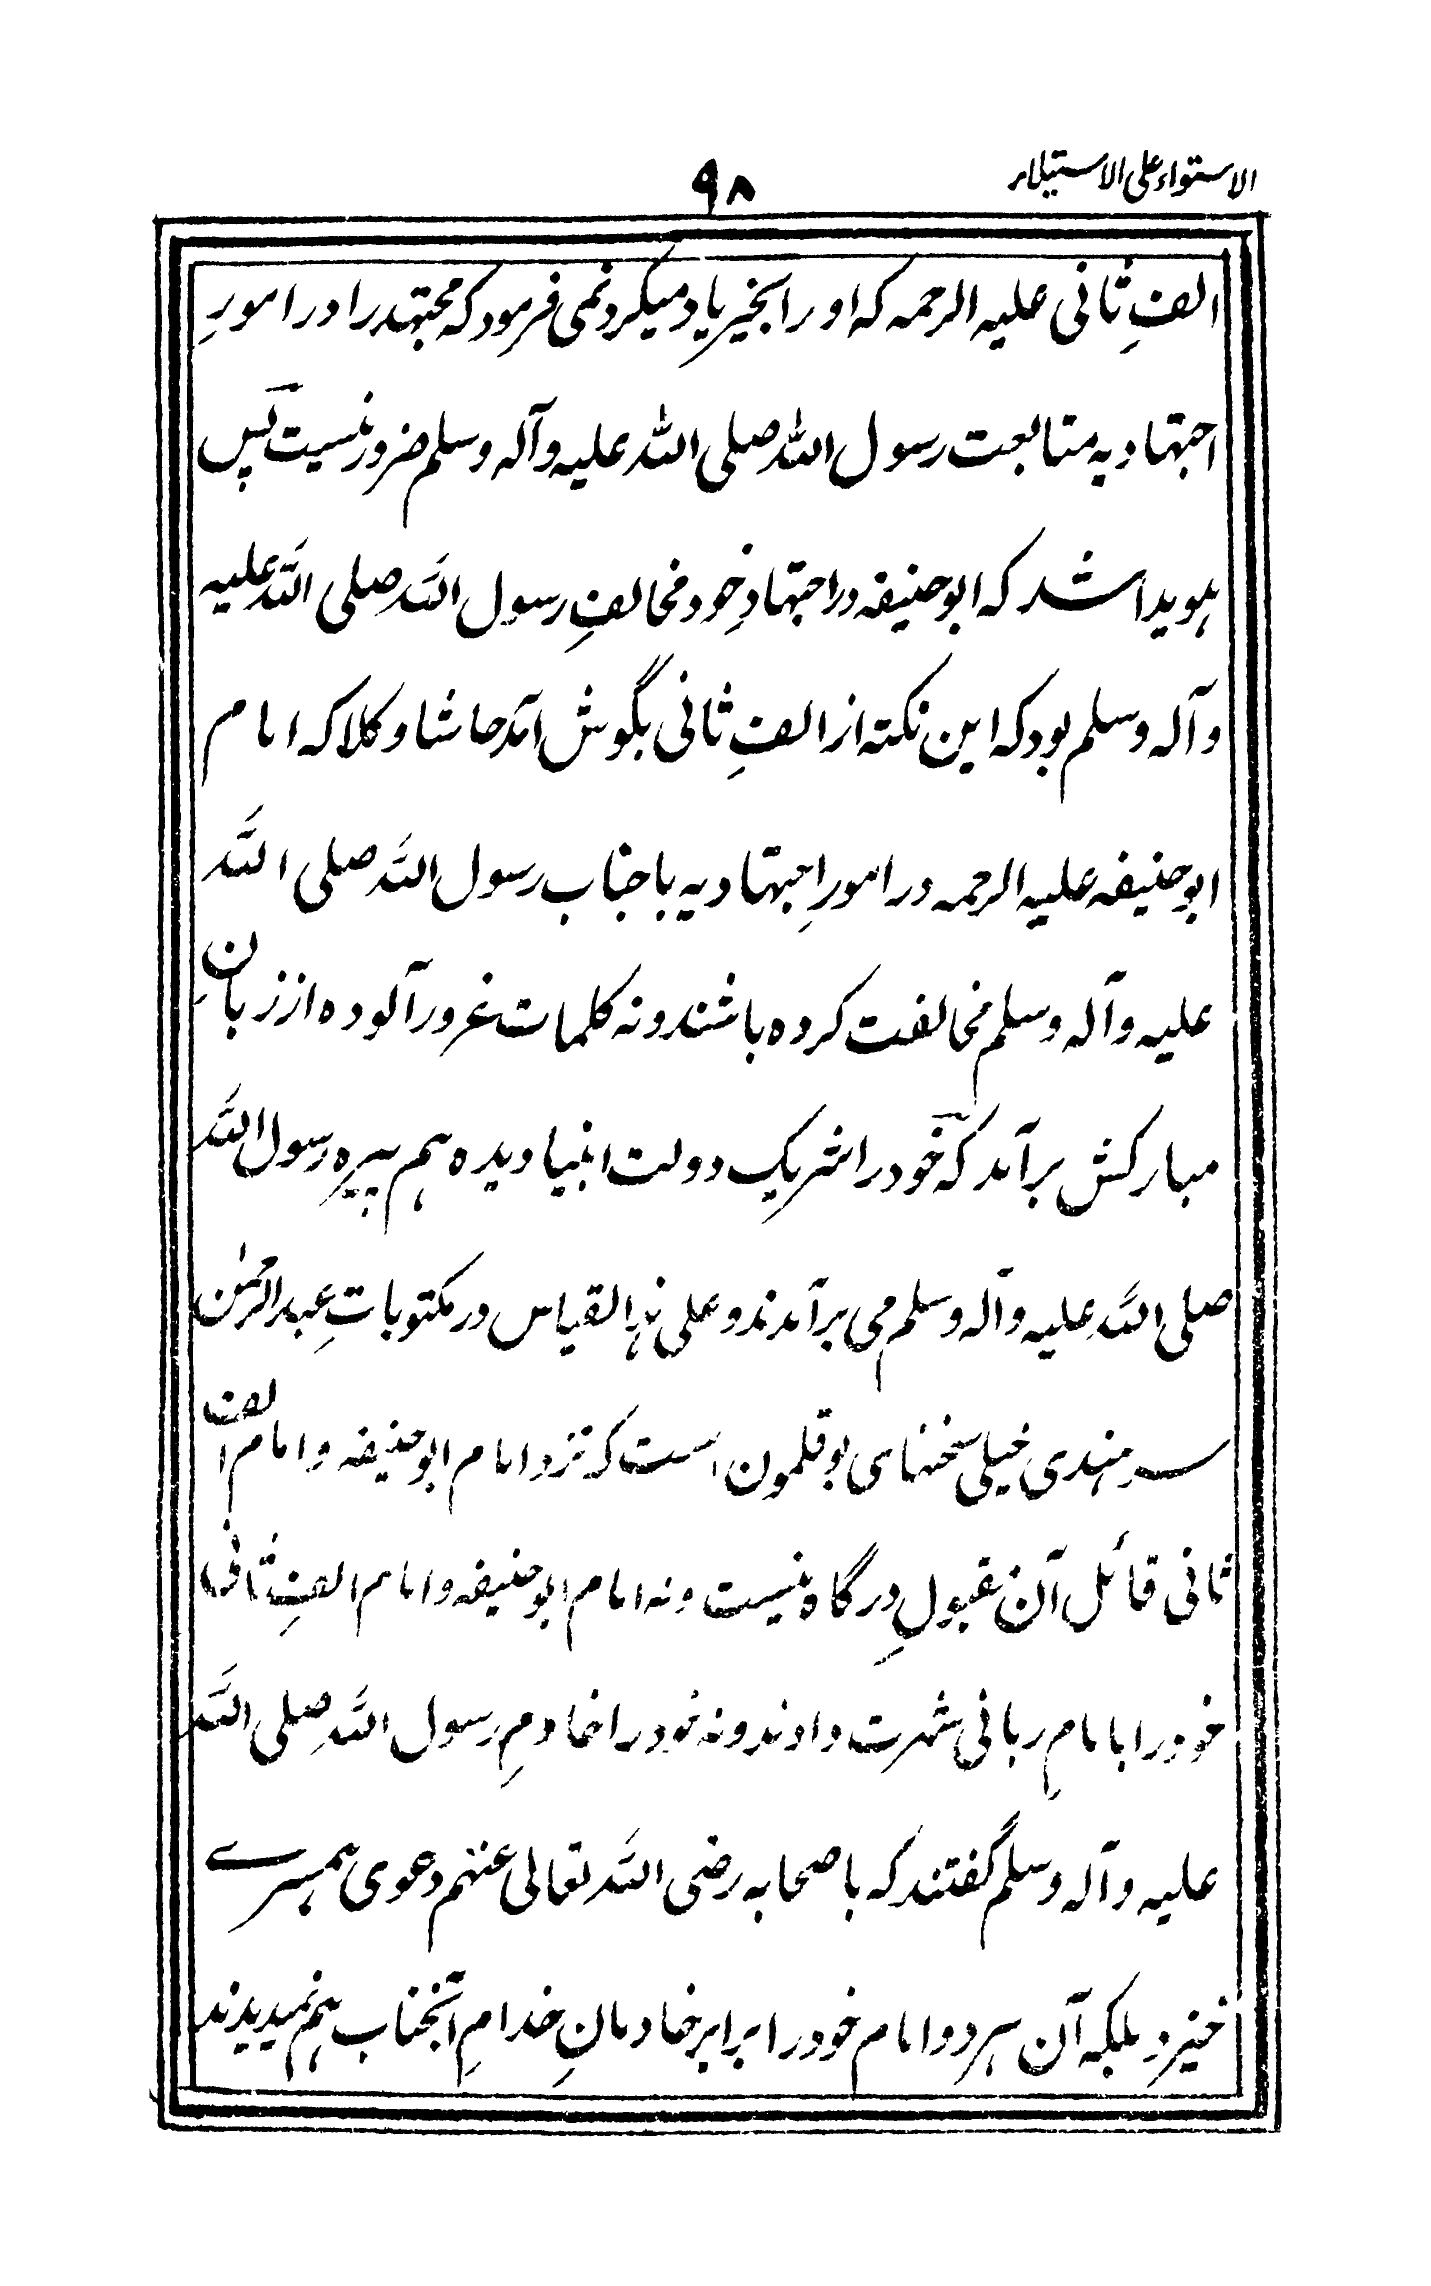 الاستواء علی الاستیلاء
۹۸
الفِ ثانی علیہ الرحمہ کہ او را بخیر یاد میکرد نمی فرمود کہ مجتہد را در امورِ
اجتہادیہ متابعت رسول اللہ صلی اللہ علیہ وآلہ وسلم ضرور نیست پس
ہویدا شد کہ ابوحنیفہ در اجتہادِ خود مخالفِ رسول اللہ صلی اللہ علیہ
وآلہ وسلم بود کہ این نکتہ از الفِ ثانی بگوش آمد حاشا وکلا کہ امام
ابوحنیفہ علیہ الرحمہ در امورِ اجتہادیہ باجناب رسول اللہ صلی اللہ
علیہ وآلہ وسلم مخالفت کردہ باشند ونہ کلمات غرور آلودہ از زبانِ
مبارکش برآمد کہ خود را شریک دولت انبیا دیدہ ہم پیرہ رسول اللہ
صلی اللہ علیہ وآلہ وسلم می برآمدند وعلی ہذا القیاس در مکتوباتِ عبدالرحمٰن
سرہندی خیلی سخنہای بوقلمون است کہ نزد امام ابوحنیفہ وامام الف
ثانی قائل آن مقبولِ درگاہ نیست ونہ امام ابوحنیفہ وامام الفِ ثانی
خود را بامامِ ربانی شہرت دادند ونہ خود را خادمِ رسول اللہ صلی اللہ
علیہ وآلہ وسلم گفتند کہ با صحابہ رضی اللہ تعالی عنہم دعوی ہمسرے
خیزد بلکہ آن ہر دو امام خود را برابر خادمانِ خدامِ آنجناب ہم نمیدیدند